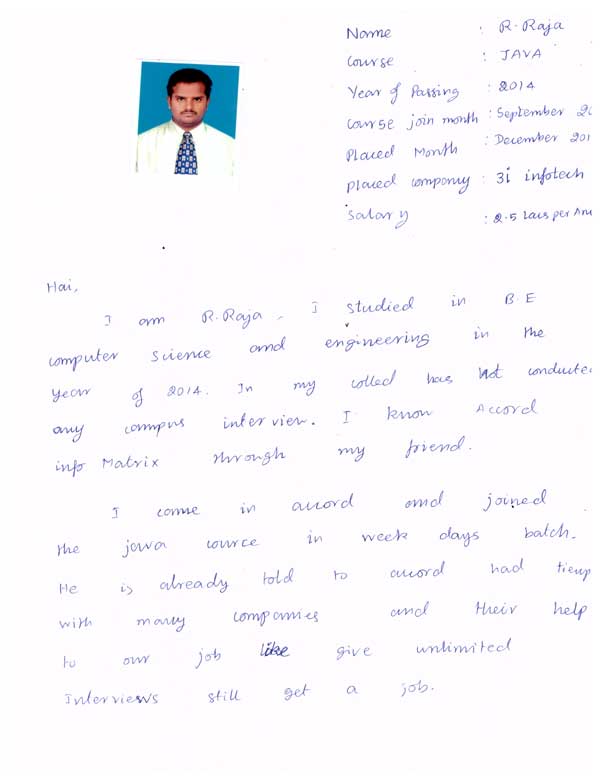 Name : R. Raja
Course : JAVA
Year of Passing : 2014
Course join month : September 20
Placed Month : December 201
Placed company : 3i infotech
Salary : 2.5 Lacs per Ann
Hai,
I am R. Raja, I studied in B.E
computer science and engineering in the
year of 2014. In my colled has Not conducted
any campus interview. I know Accord
info Matrix through my friend.
I come in accord and joined
the java cource in week days batch.
He is already told to accord had tieup
with many companies and their help
to our job like give unlimited
Interviews still get a job.